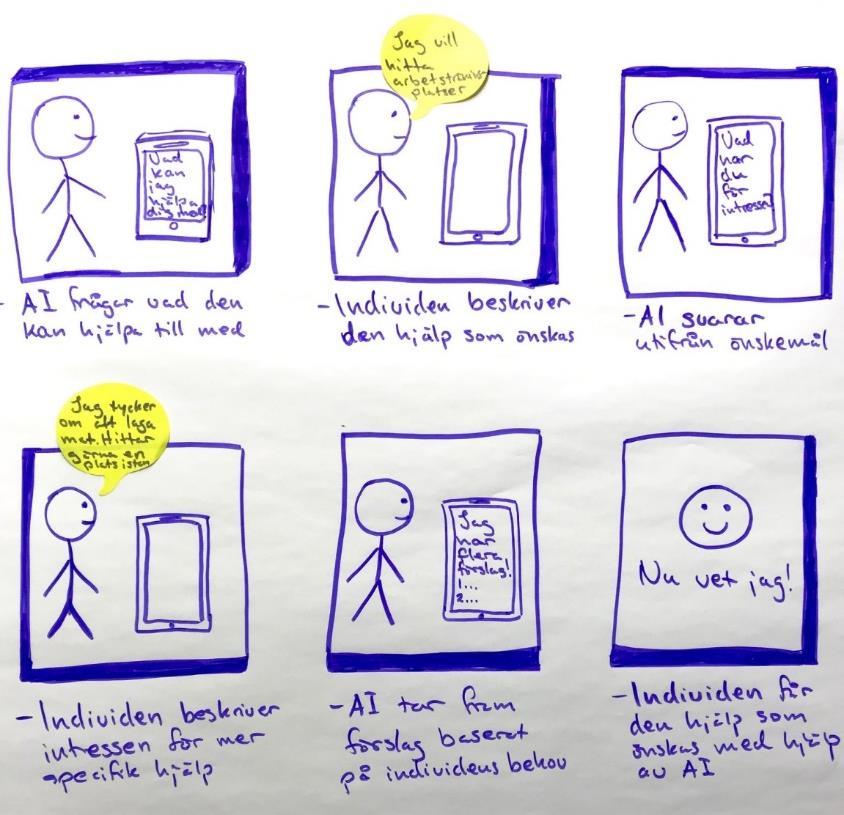 Vad
kan
jag
hjälpa
dig med?
- AI frågar vad den
kan hjälpa till med
Jag vill
hitta
arbetstränings-
platser
- Individen beskriver
den hjälp som önskas
Vad
har
du
för
intresse?
- AI svarar
utifrån önskemål
Jag tycker
om att laga
mat. Hittar
gärna en
plats i stan
- Individen beskriver
intressen för mer
specifik hjälp
Jag
har
flera
förslag!
1...
2...
- AI tar fram
förslag baserat
på individens behov
Nu vet jag!
- Individen får
den hjälp som
önskas med hjälp
av AI